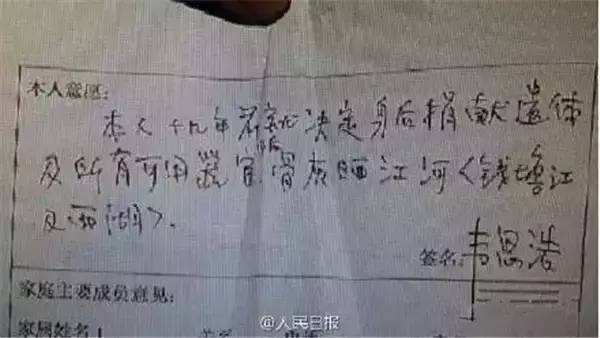 本人意愿:
本人十九年前就决定身后捐献遗体
及所有可用器官,骨灰洒江河〈钱塘江
及西湖〉.
签名:韦思浩
家庭主要成员意见:
家属姓名
@人民日报